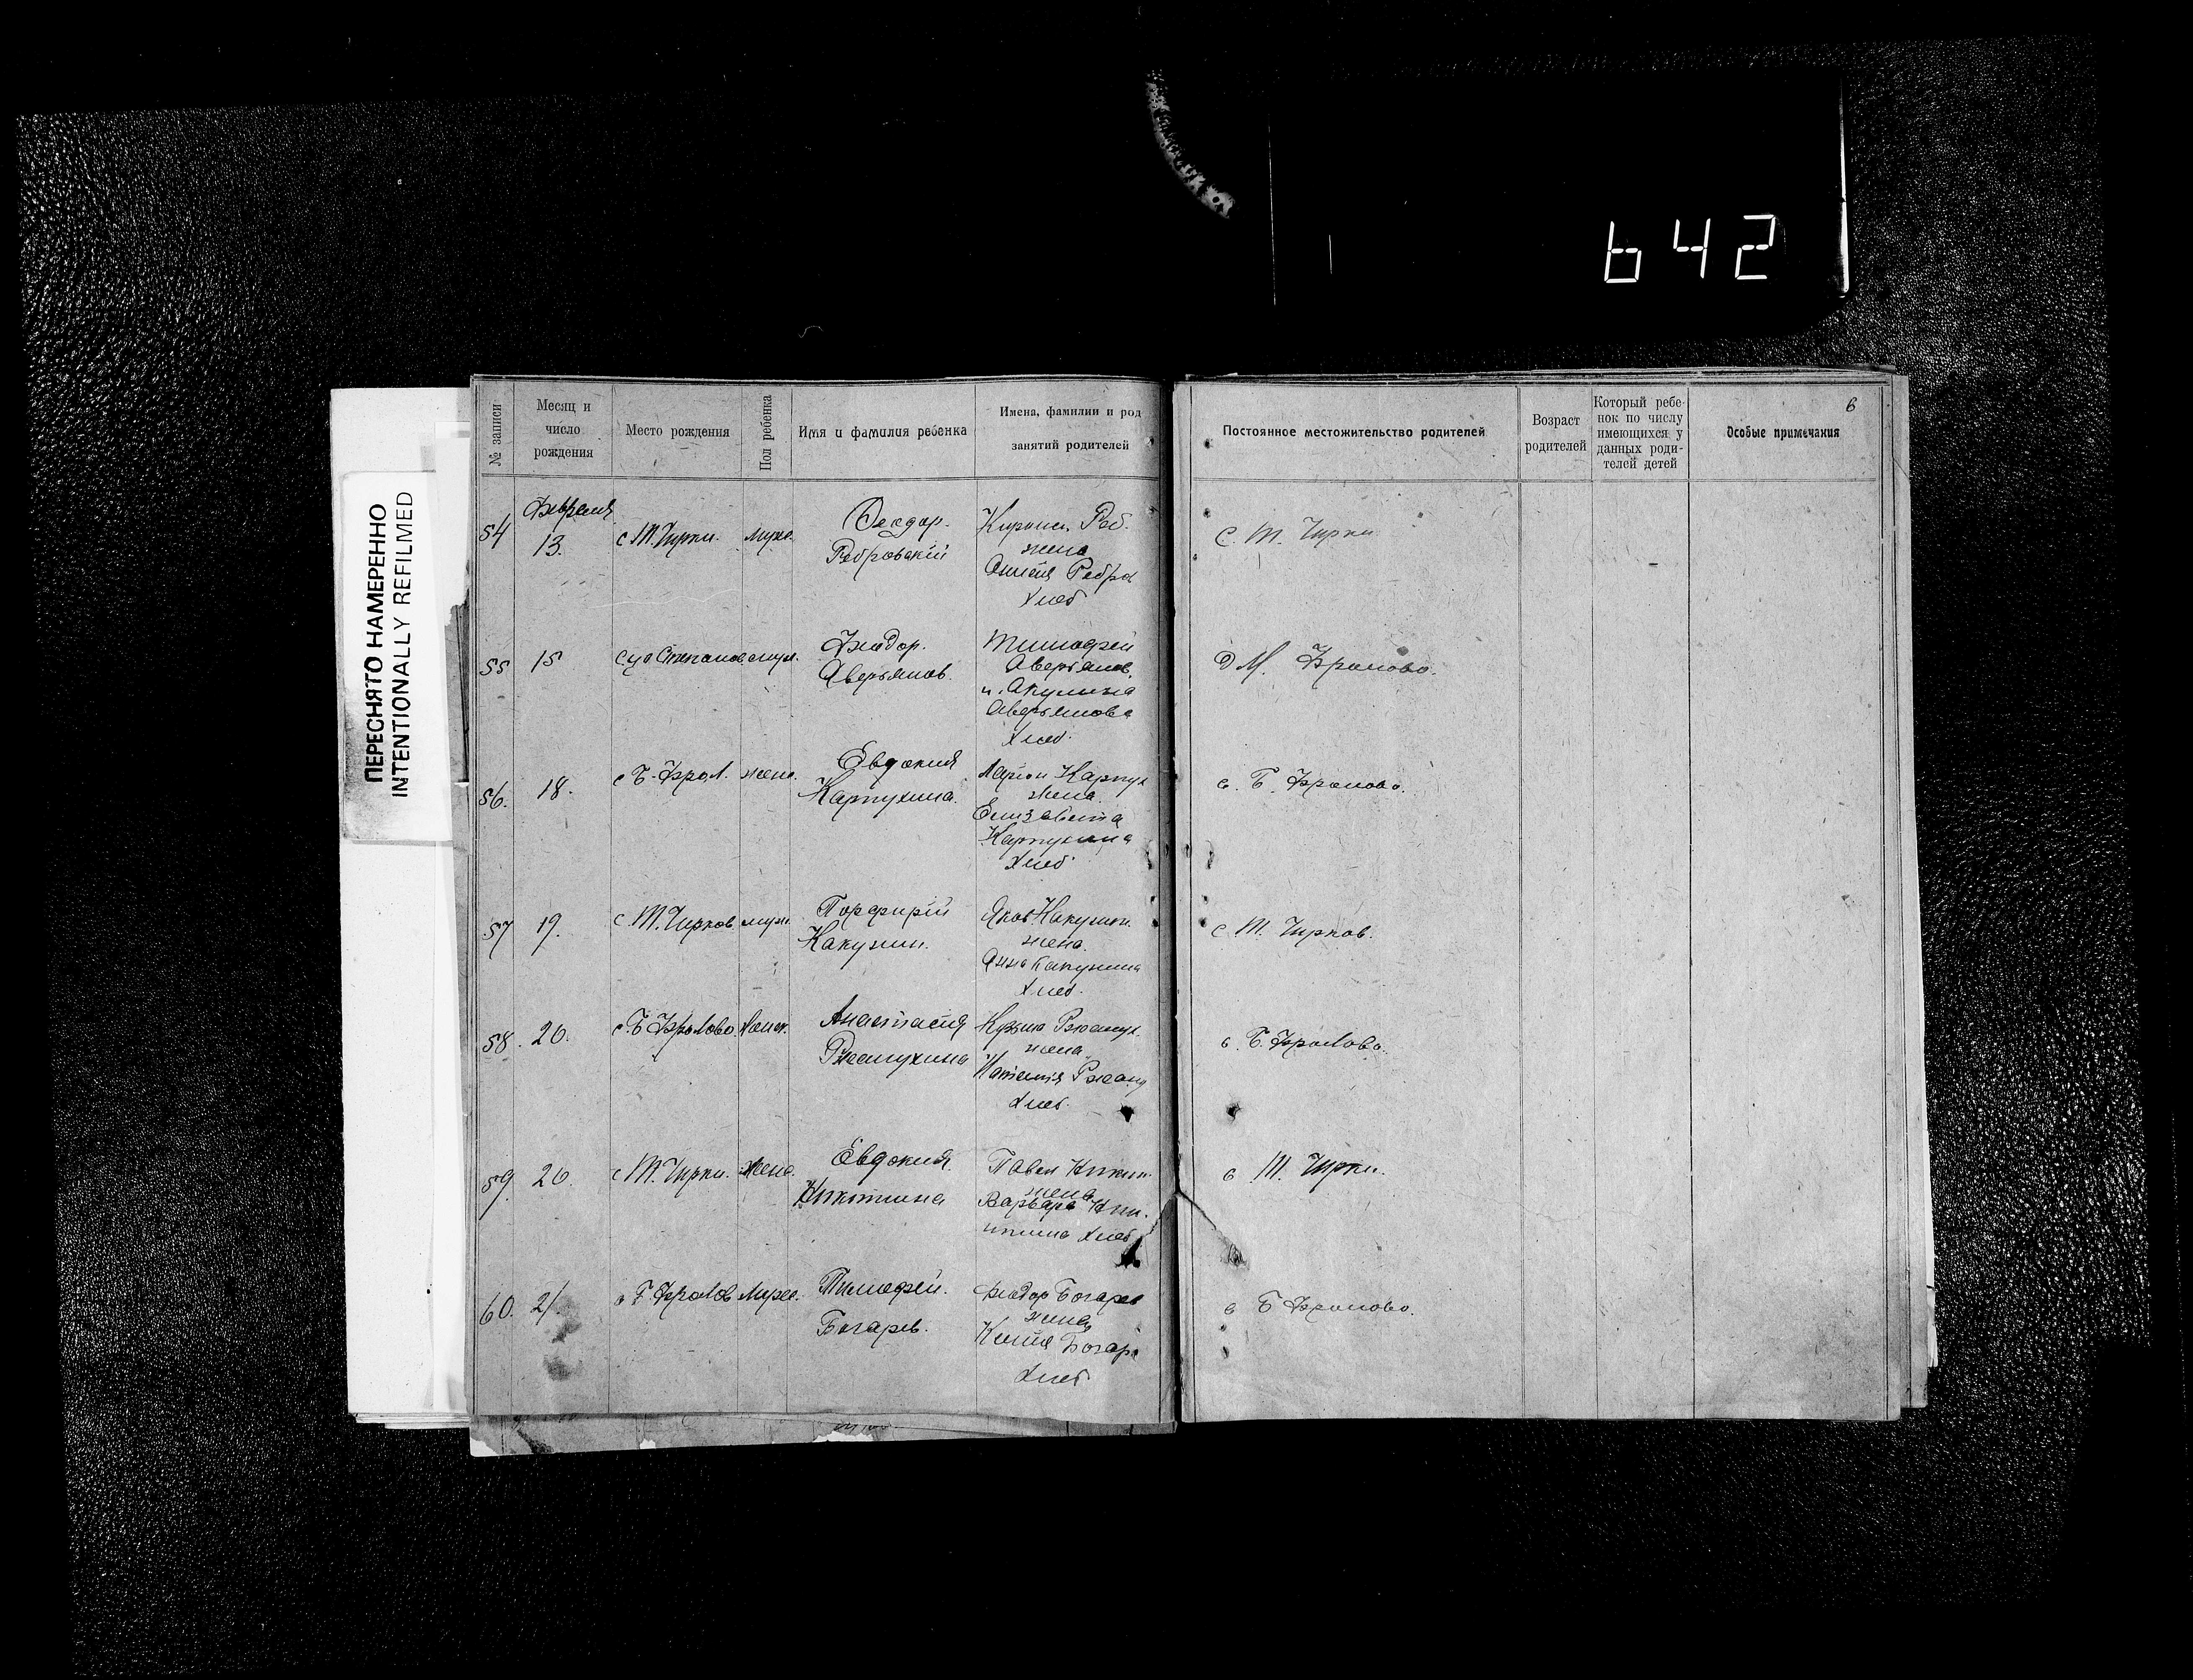 642
ПЕРЕСНЯТО НАМЕРЕННО
INTENTIONALLY REFILMED
№ записи
Месяц и
число
рождения
Место рождения
Пол ребенка
Имя и фамилия ребенка
Имена, фамилии и род
занятий родителей
Постоянное местожительство родителей
Возраст
родителей
Который ребе-
нок по числу
имеющихся у
данных роди-
телей детей
Особые примечания
6
54
Февраля
13.
с Т. Чирки.
муж.
Феодор.
Ребровскій
Реб.
жена
Ребро
Хлеб
С. Т. Чирки
55
15
муж.
Феодор.
Аверьянов.
Тимофей
Аверьянов.
и. Акулина
Аверьянова
Хлеб.
д М. Фролово.
56.
18.
с Б. Фрол.
женс.
Евдокия
Карпухина.
Ларион Карпух
жена.
Елизавета
Карпухина
Хлеб
с. Б. Фролово.
57
19.
с Т. Чирков
муж.
Порфирій
Какунин.
Яков Какунин.
жена.
Анна Какунина
Хлеб.
с Т. Чирков.
58.
20.
с. Б Фролово.
Женск.
Анастасия
Кузьма
жена
Наталия
Хлеб.
с. Б. Фролово.
59.
20.
с Т. Чирки.
Женс.
Евдокия.
Никитина
Павел Никит.
жена
Варвара Ники-
тина Хлеб
с Т. Чирки.
60.
21.
с Б. Фролов
Мужс.
Тимофей.
Богарев.
Феодор Богарев
жена
Богаре
Хлеб
с Б Фролово.